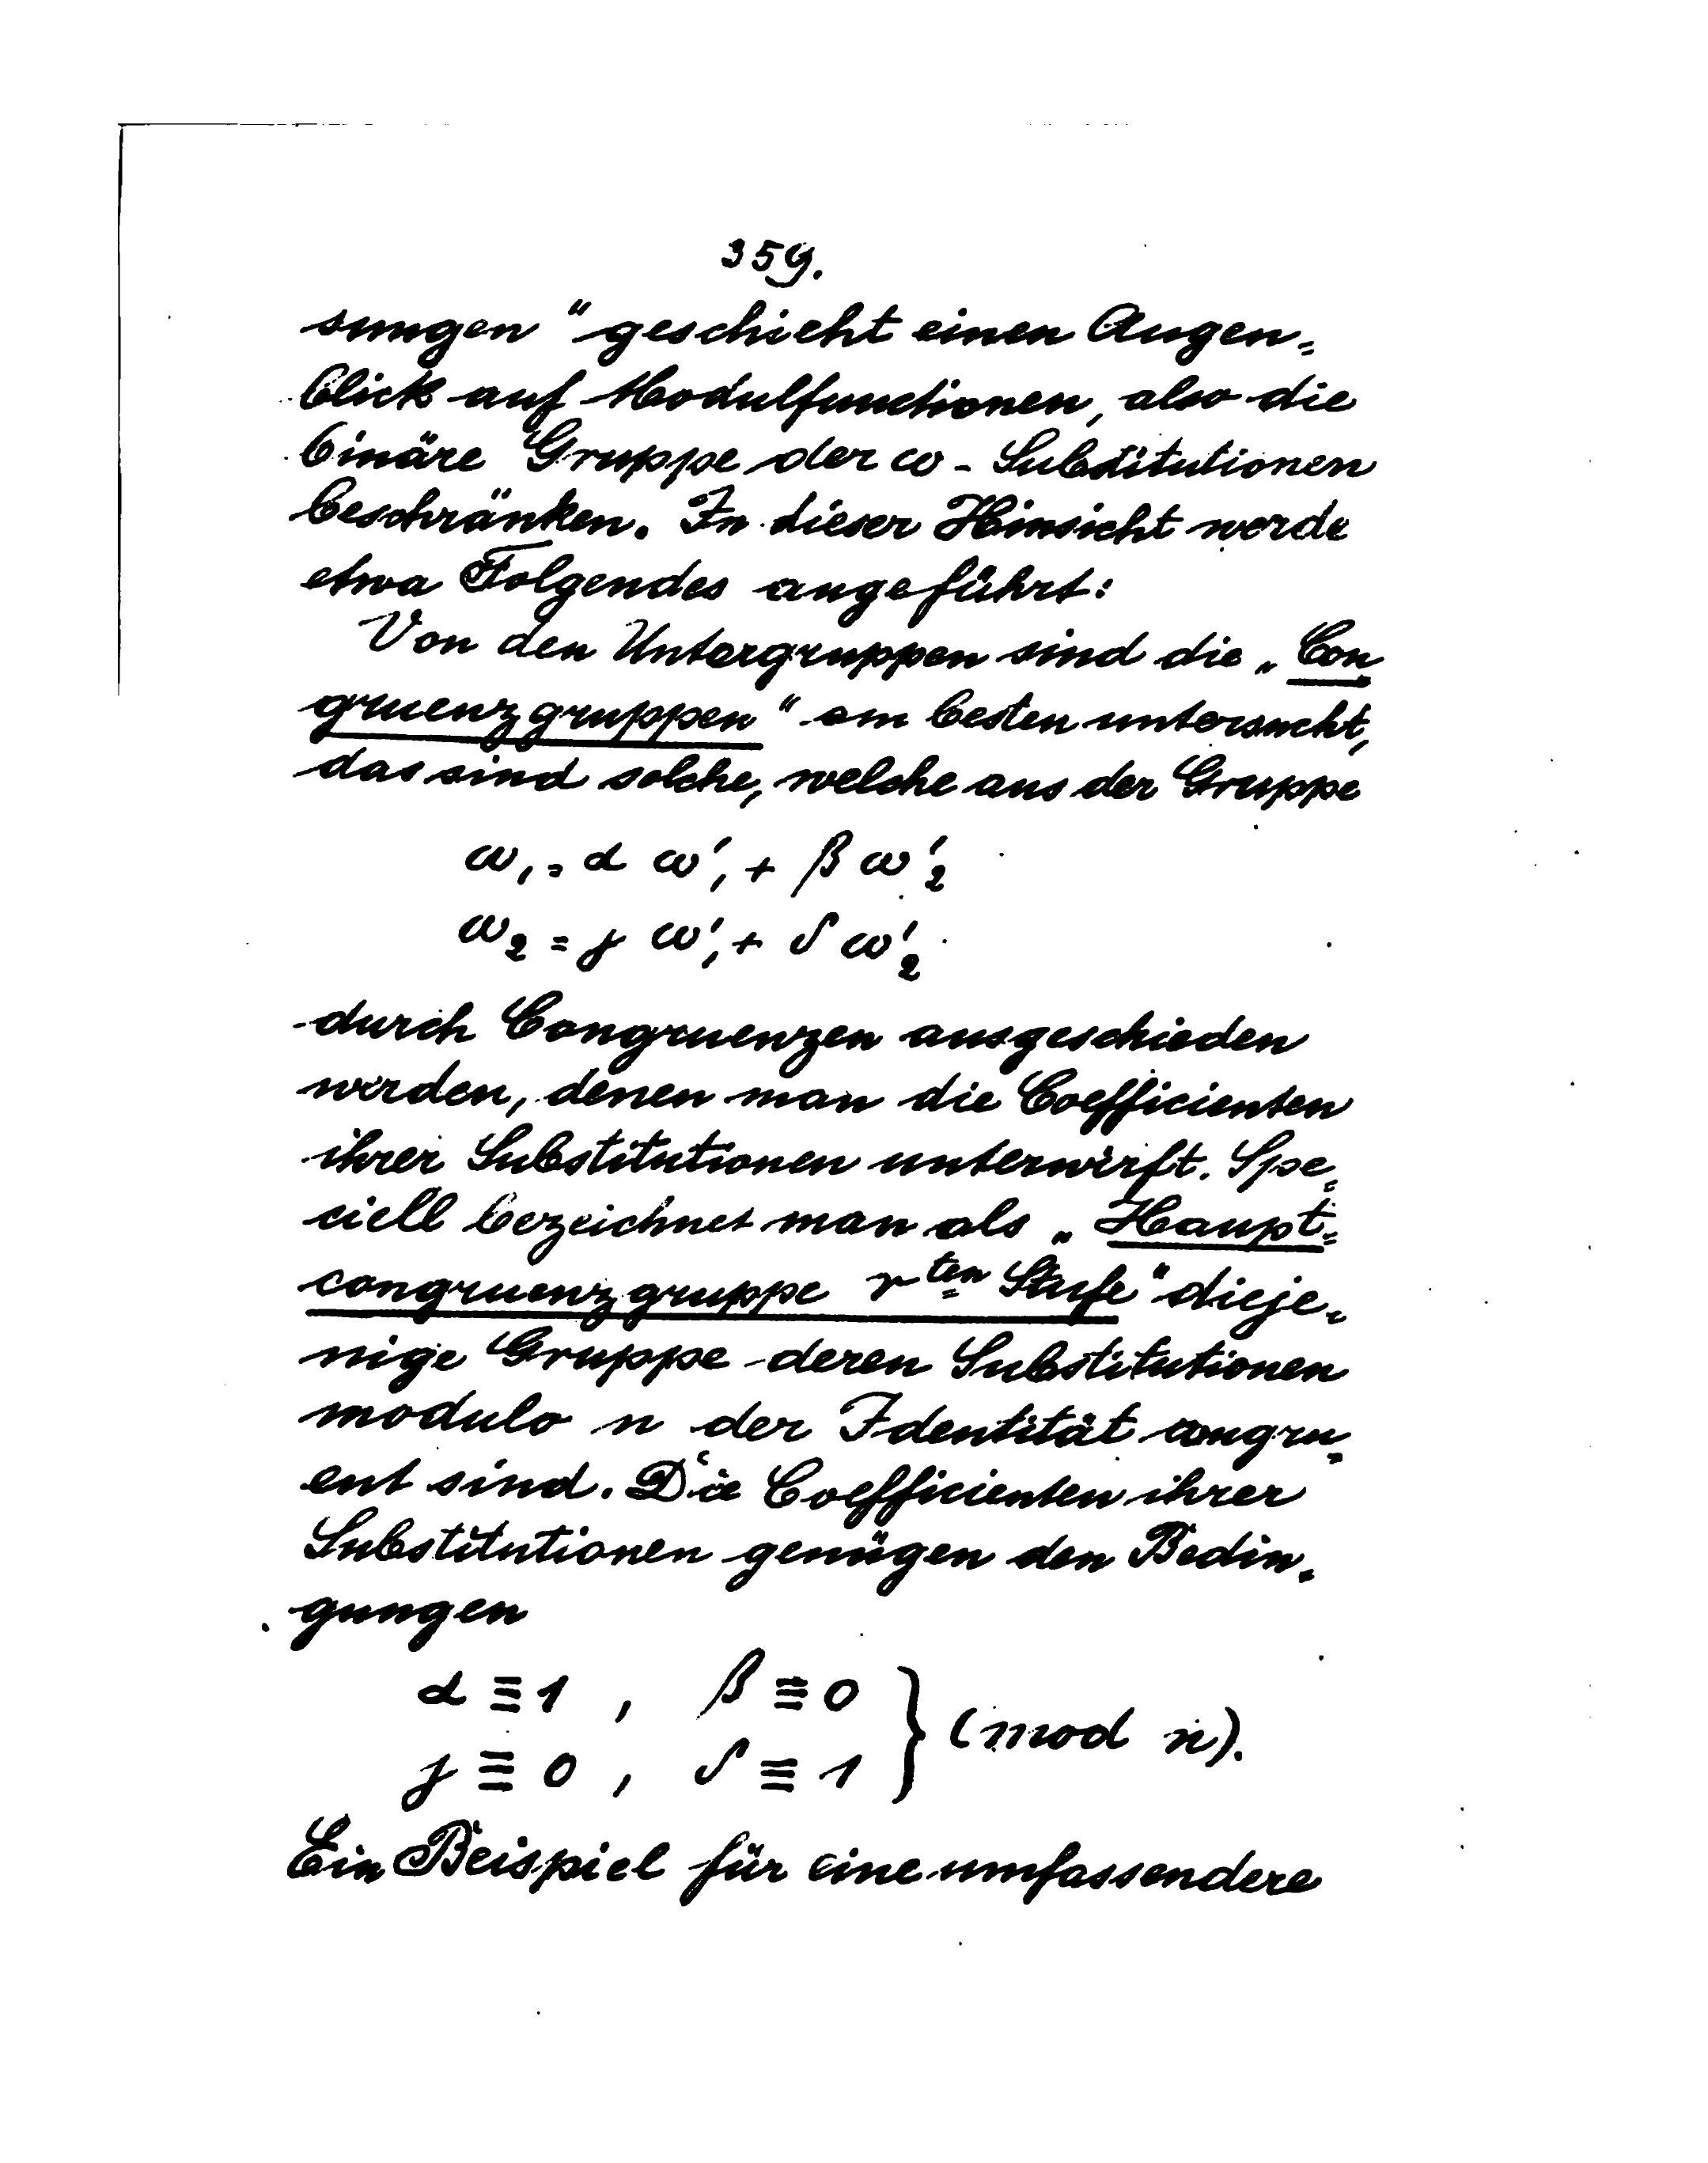 359.
sungen“ geschieht einen Augen=
blick auf Modulfunctionen, also die
binäre Gruppe der ω - Substitutionen
beschränken. In dieser Hinsicht werde
etwa Folgendes angeführt:
Von den Untergruppen sind die „Con=
gruenzgruppen“ am besten untersucht,
das sind solche, welche aus der Gruppe
ω₁ = α ω′₁ + β ω′₂
ω₂ = γ ω′₁ + δ ω′₂
durch Congruenzen ausgeschieden
werden, denen man die Coefficienten
ihrer Substitutionen unterwirft. Spe=
ciell bezeichnet man als „Haupt=
congruenzgruppe nten Stufe“ dieje=
nige Gruppe deren Substitutionen
modulo n der Identität congru=
ent sind. Die Coefficienten ihrer
Substitutionen genügen den Bedin=
gungen
α ≡ 1 , β ≡ 0
γ ≡ 0 , δ ≡ 1 } (mod n).
Ein Beispiel für eine umfassendere